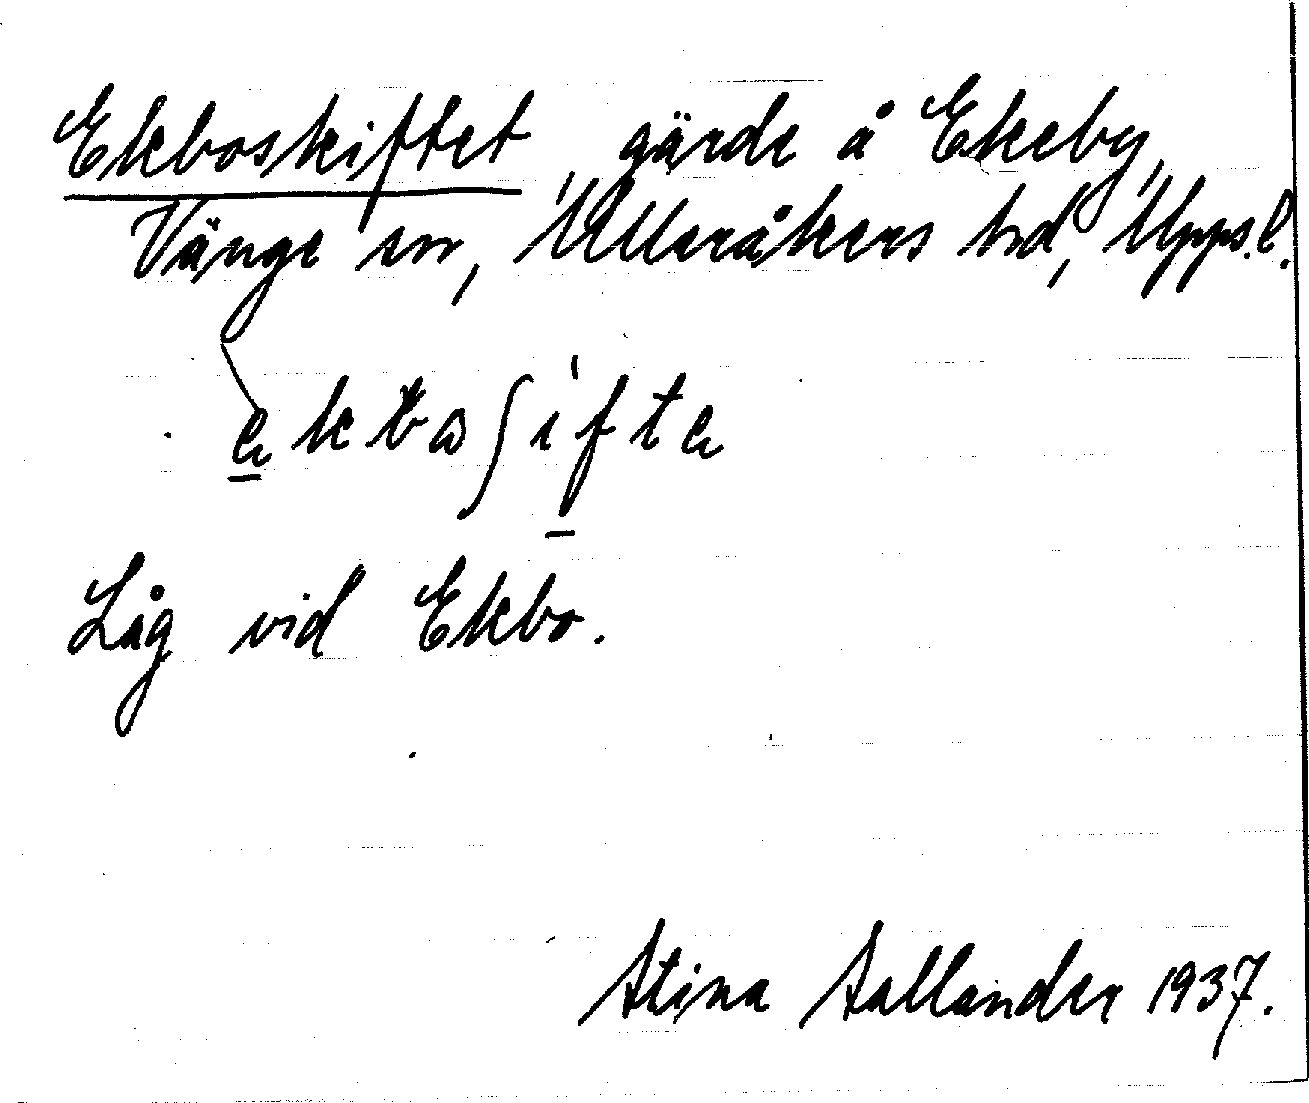 Ekboskiftet, gärde å Ekeby,
Vänge sn, Ulleråkers hd, Uppsl.
ekboʃifte
Låg vid Ekbo.
Stina Sallander 1937.